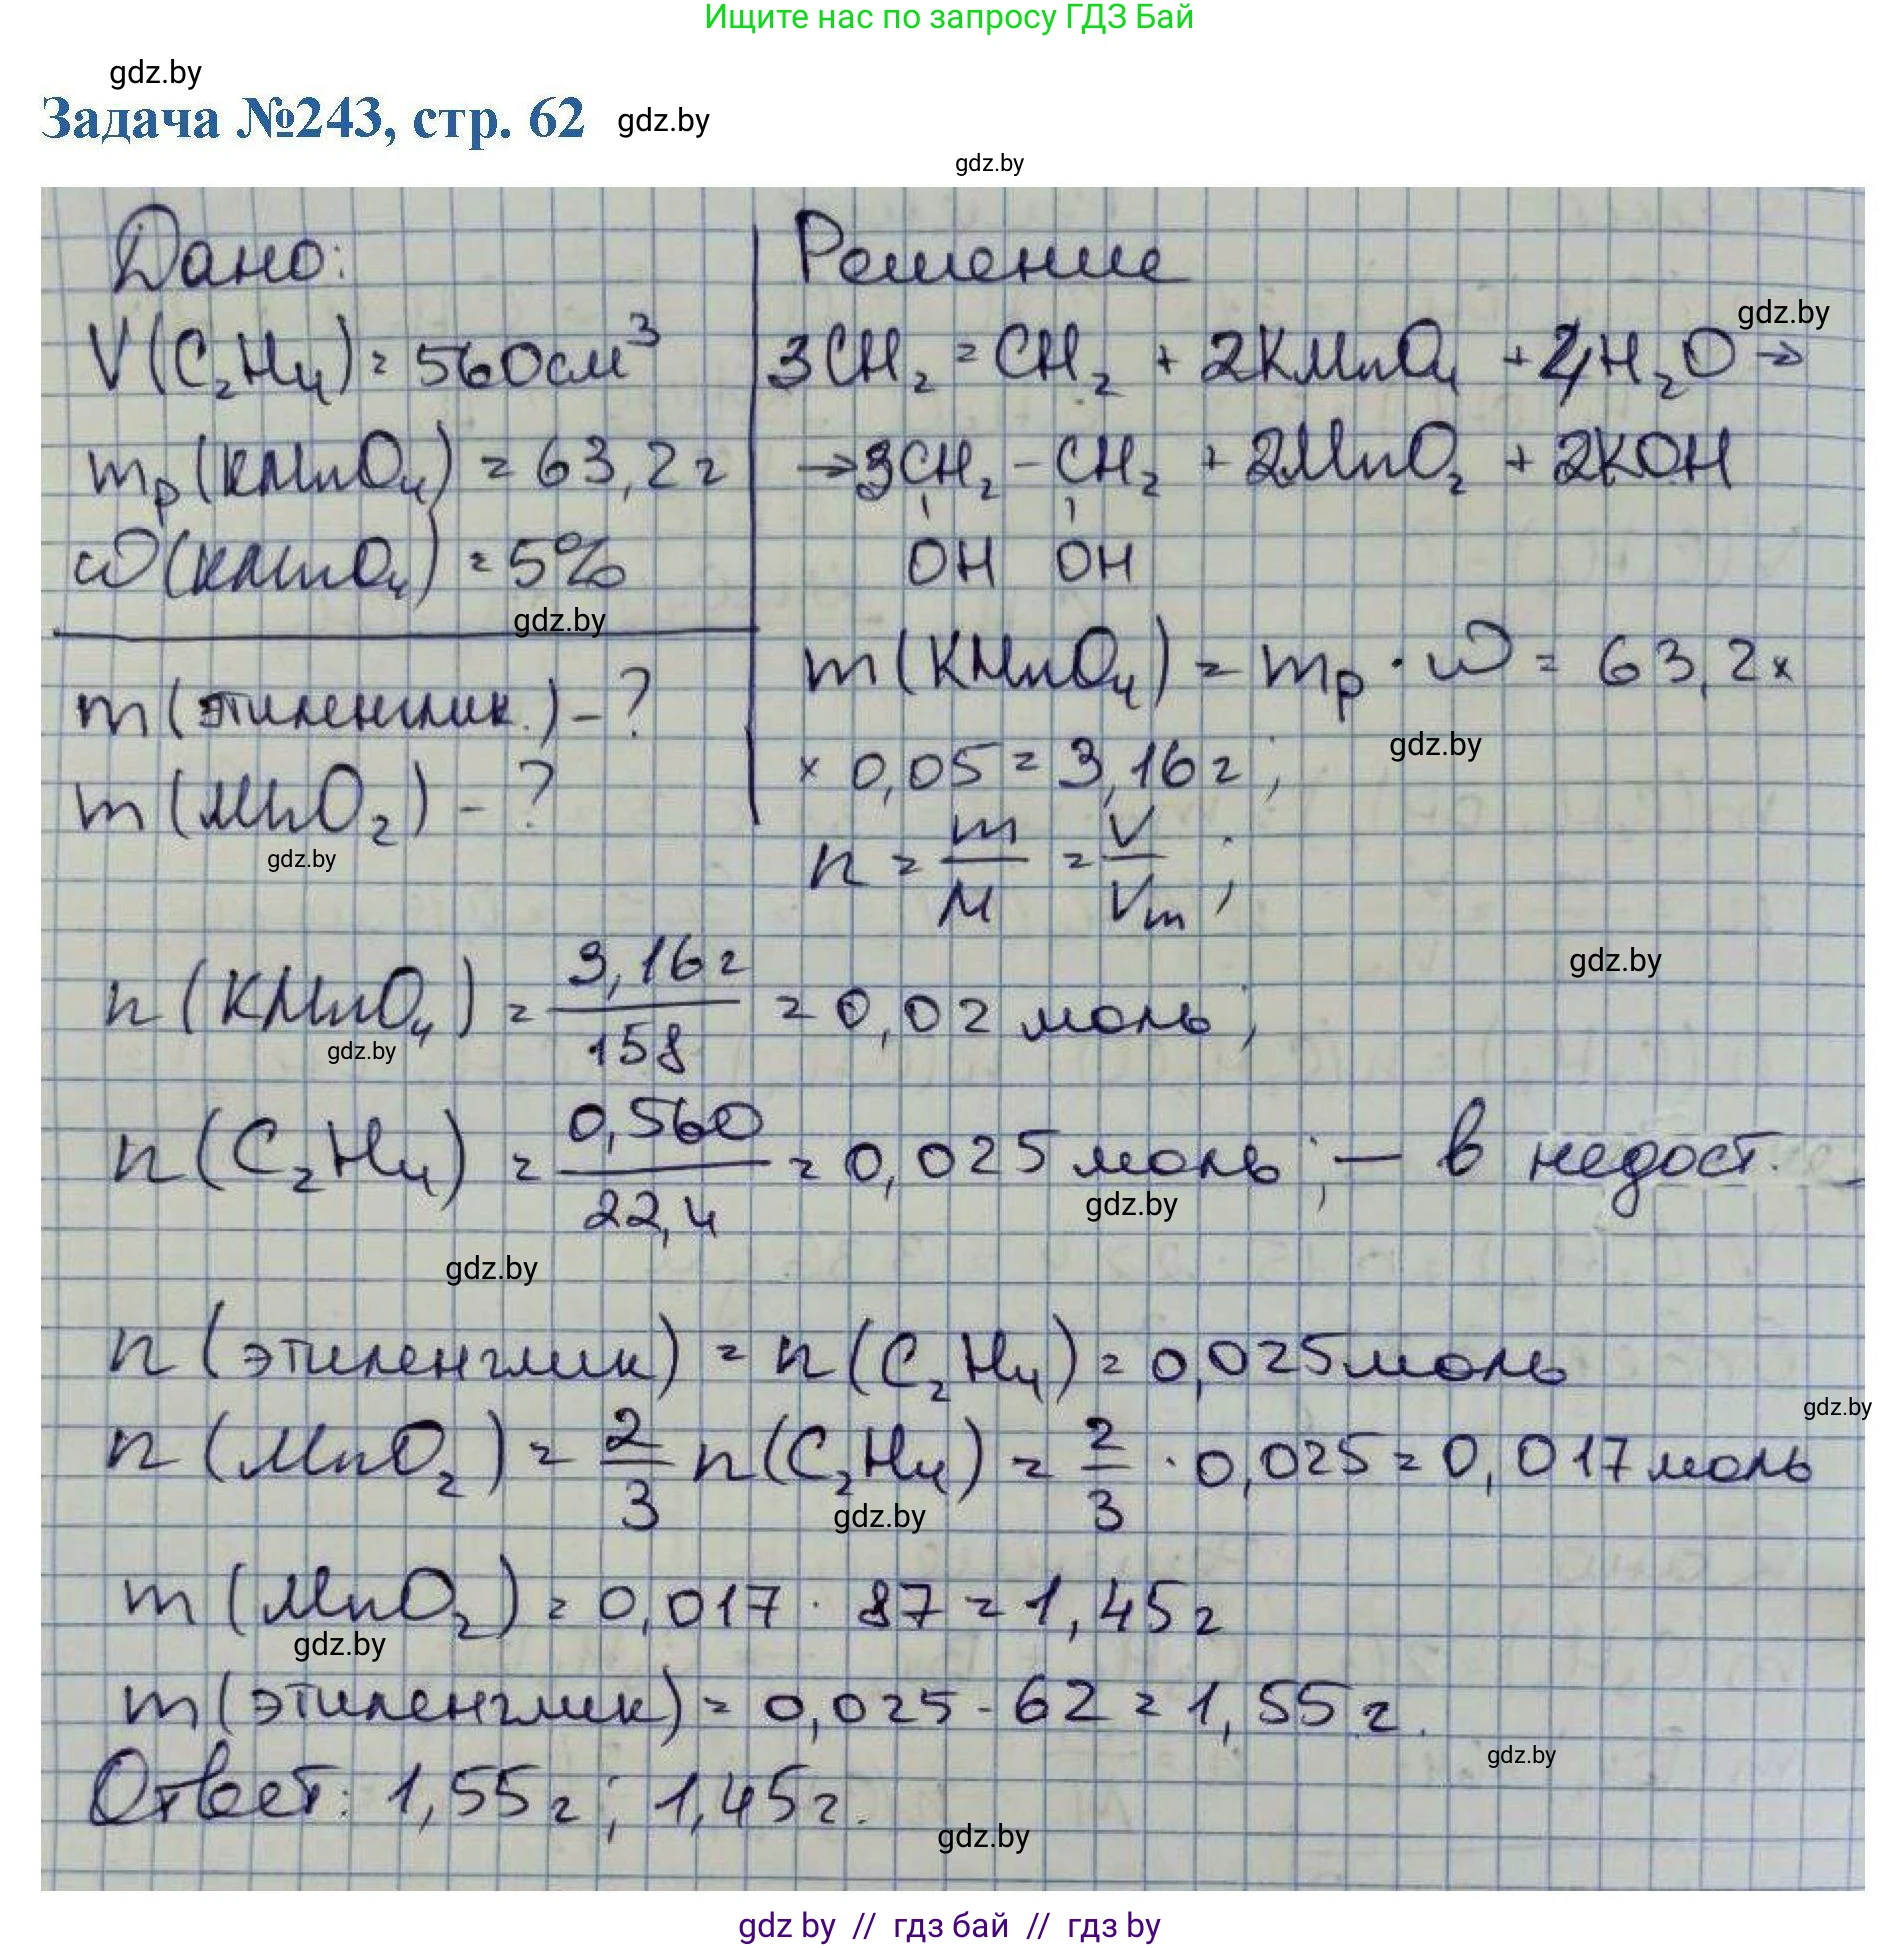 Ищите нас по запросу ГДЗ Бай
gdz.by
Задача №243, стр. 62 gdz.by
gdz.by
Дано:
V(C₂H₄) = 560 см³
mр(KMnO₄) = 63,2 г
ω(KMnO₄) = 5%
gdz.by
m(этиленглик.) - ?
m(MnO₂) - ?
gdz.by
Решение
gdz.by
3CH₂ = CH₂ + 2KMnO₄ + 4H₂O →
→ 3CH₂ - CH₂ + 2MnO₂ + 2KOH
OH OH
m(KMnO₄) = mр · ω = 63,2 ×
gdz.by
× 0,05 = 3,16 г;
n = m/M = V/Vm;
gdz.by
n(KMnO₄) = 3,16 г/158 = 0,02 моль;
gdz.by
n(C₂H₄) = 0,560/22,4 = 0,025 моль; — в недост.
gdz.by
gdz.by
n(этиленглик) = n(C₂H₄) = 0,025 моль
gdz.by
n(MnO₂) = 2/3 n(C₂H₄) = 2/3 · 0,025 = 0,017 моль
gdz.by
m(MnO₂) = 0,017 · 87 = 1,45 г
gdz.by
m(этиленглик) = 0,025 · 62 = 1,55 г.
gdz.by
Ответ: 1,55 г; 1,45 г.
gdz.by
gdz by // гдз бай // гдз by